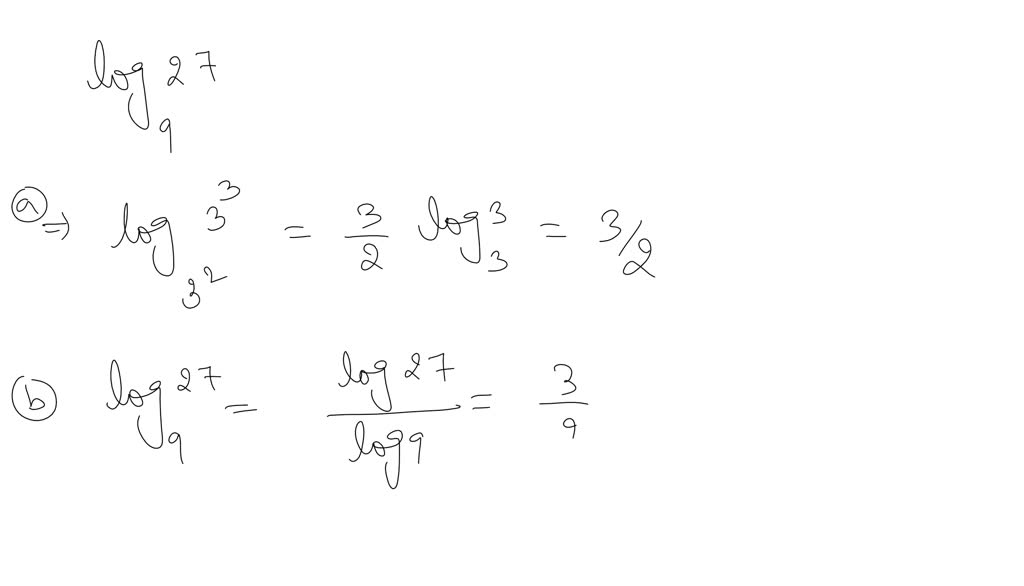 log₉ 27
ⓐ ⇒ log_{3²} 3³ = 3/2 log₃ 3 = 3/2
ⓑ log₉ 27 = log 27 / log 9 = 3/9